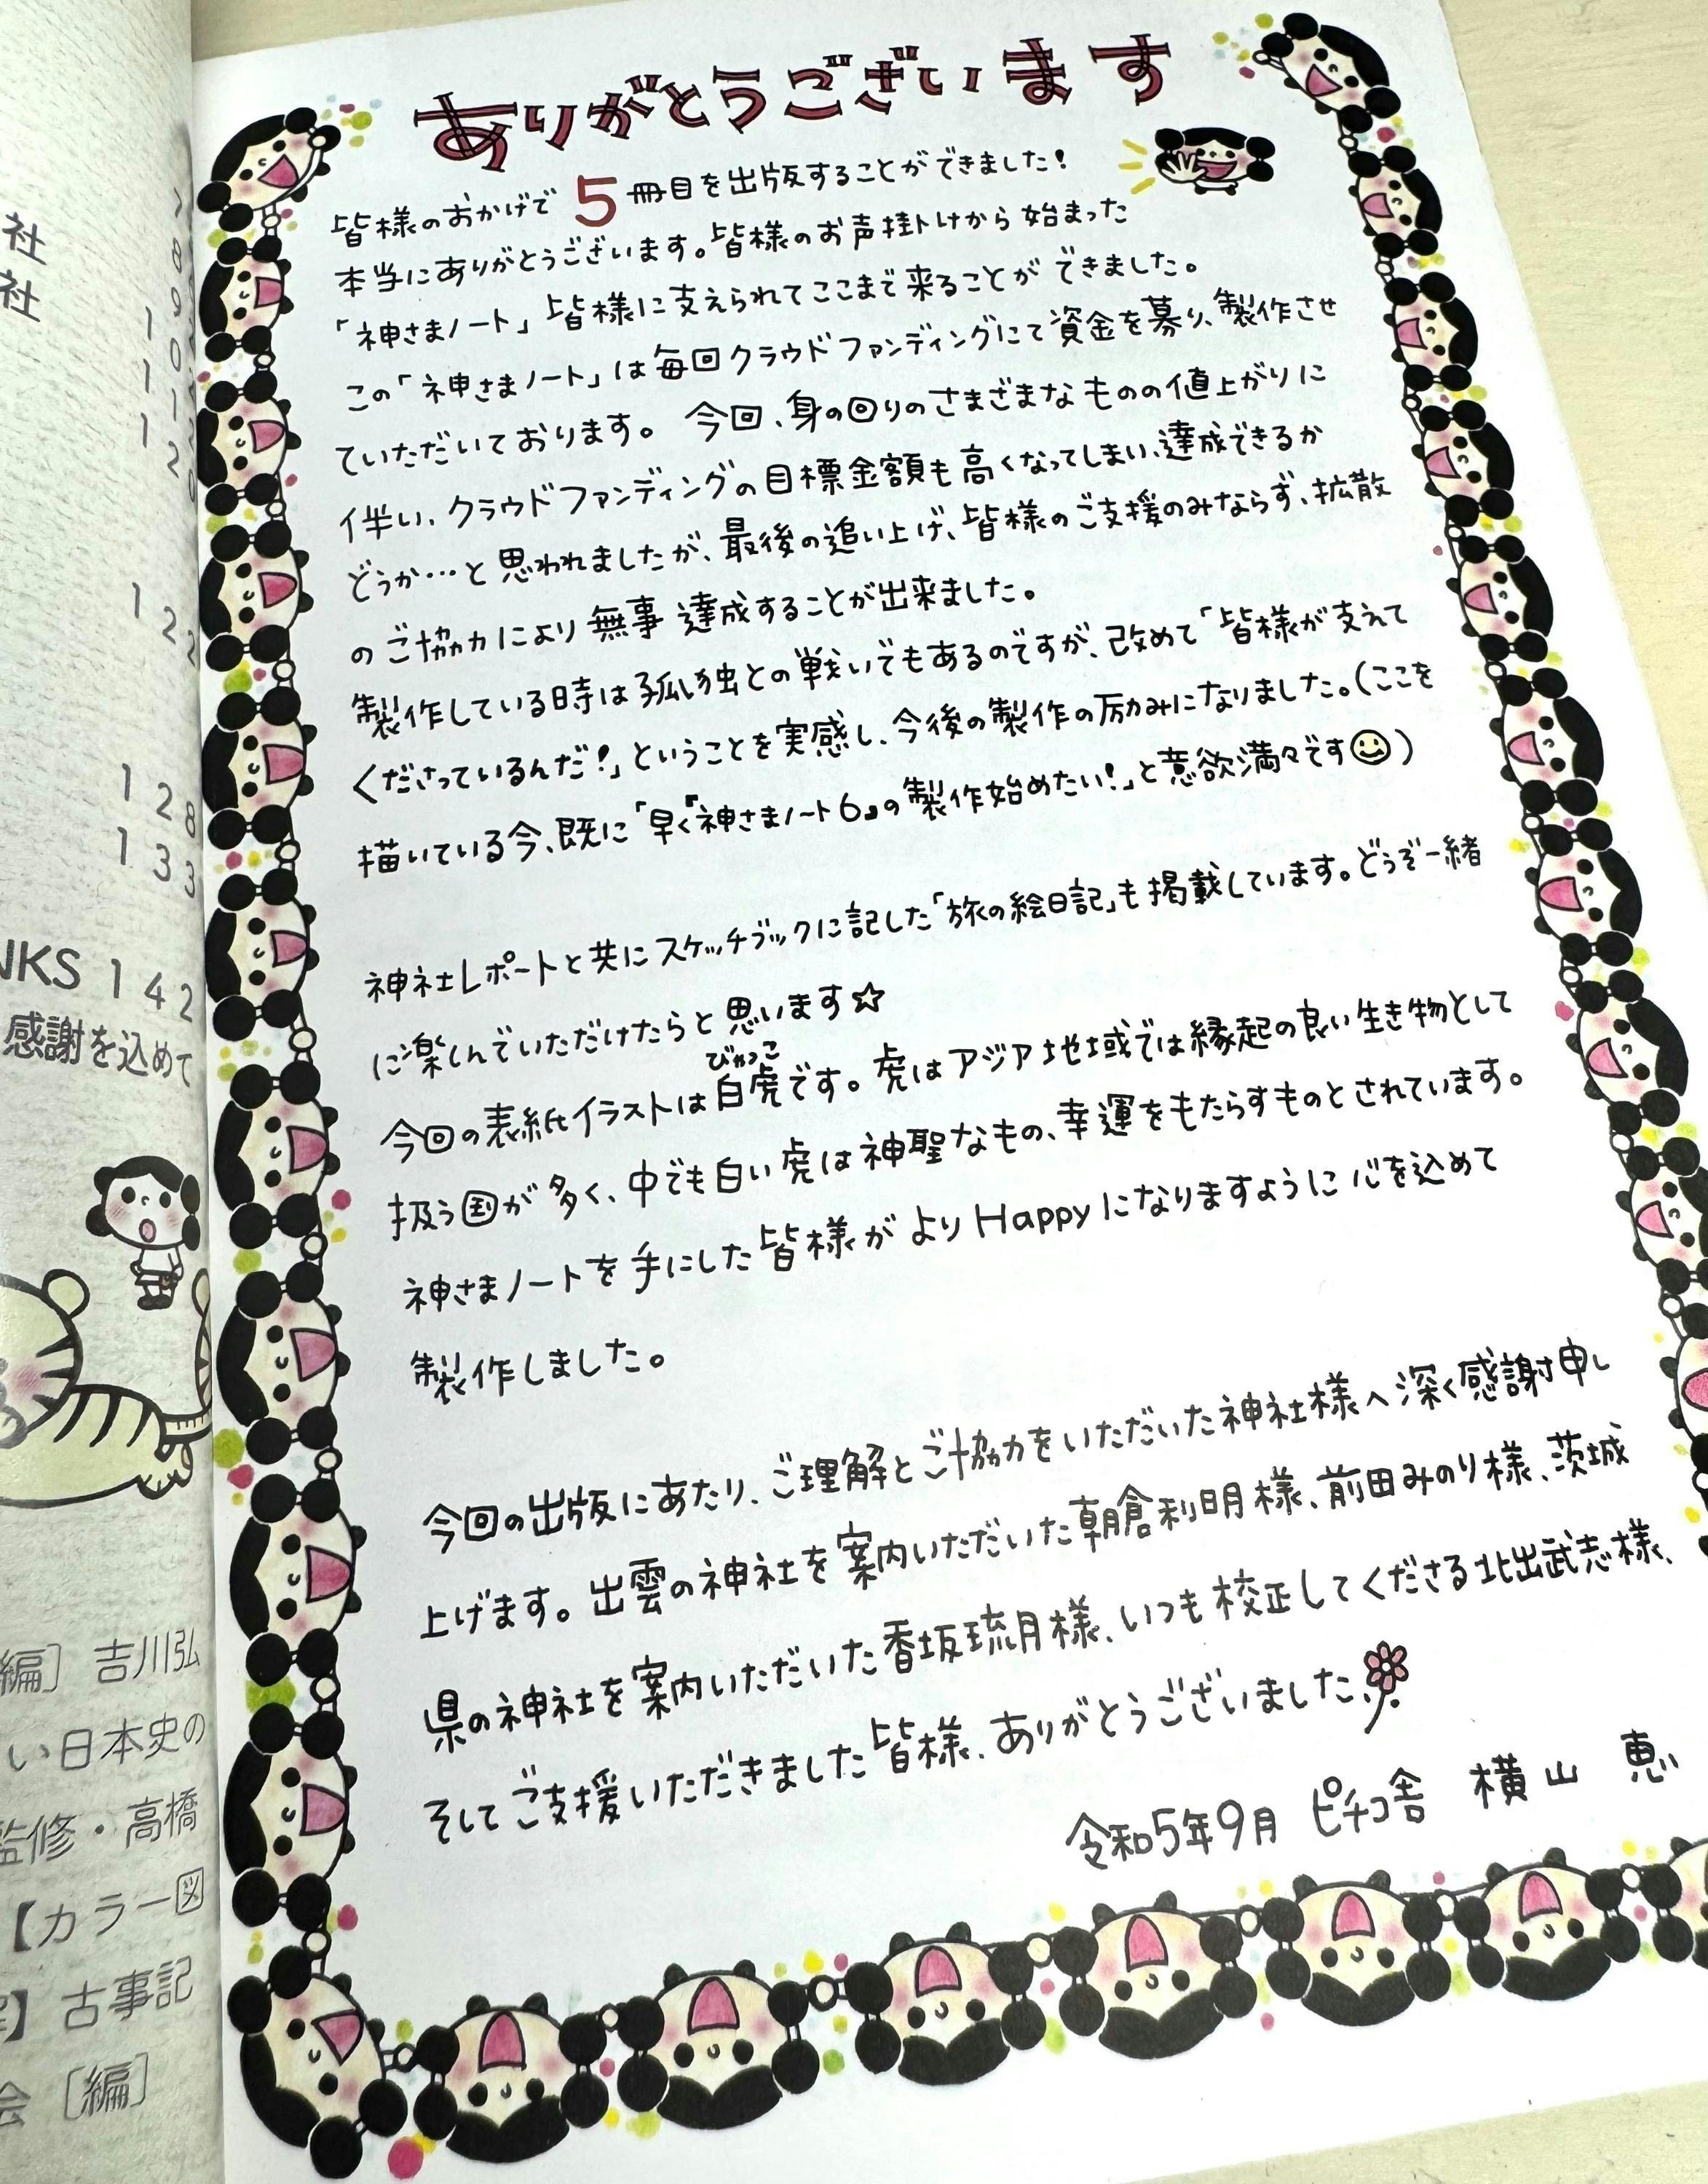 社
社
1 2 2
1 2 8
1 3 3
NKS 1 4 2
感謝を込めて
編〕 吉川弘
い日本史の
監修・高橋
【カラー図
】古事記
会〔編〕
ありがとうございます
皆様のおかげで5冊目を出版することができました!
本当にありがとうございます。皆様のお声掛けから始まった
「神さまノート」皆様に支えられてここまで来ることができました。
この「神さまノート」は毎回クラウドファンディングにて資金を募り、製作させ
ていただいております。 今回、身の回りのさまざまなものの値上がりに
伴い、クラウドファンディングの目標金額も高くなってしまい、達成できるか
どうか…と思われましたが、最後の追い上げ、皆様のご支援のみならず、拡散
のご協力により無事達成することが出来ました。
製作している時は孤独との戦いでもあるのですが、改めて「皆様が支えて
くださっているんだ!」ということを実感し、今後の製作の励みになりました。(ここを
描いている今、既に「早く『神さまノート6』の製作始めたい!」と意欲満々です☺)
神社レポートと共にスケッチブックに記した「旅の絵日記」も掲載しています。どうぞ一緒
に楽しんでいただけたらと思います☆
びゃっこ
今回の表紙イラストは白虎です。虎はアジア地域では縁起の良い生き物として
扱う国が多く、中でも白い虎は神聖なもの、幸運をもたらすものとされています。
神さまノートを手にした皆様がよりHappyになりますように心を込めて
製作しました。
今回の出版にあたり、ご理解とご協力をいただいた神社様へ深く感謝申し
上げます。出雲の神社を案内いただいた朝倉利明様、前田みのり様、茨城
県の神社を案内いただいた香坂琉月様、いつも校正してくださる北出武志様、
そしてご支援いただきました皆様、ありがとうございました
令和5年9月 ピチコ舎 横山 恵